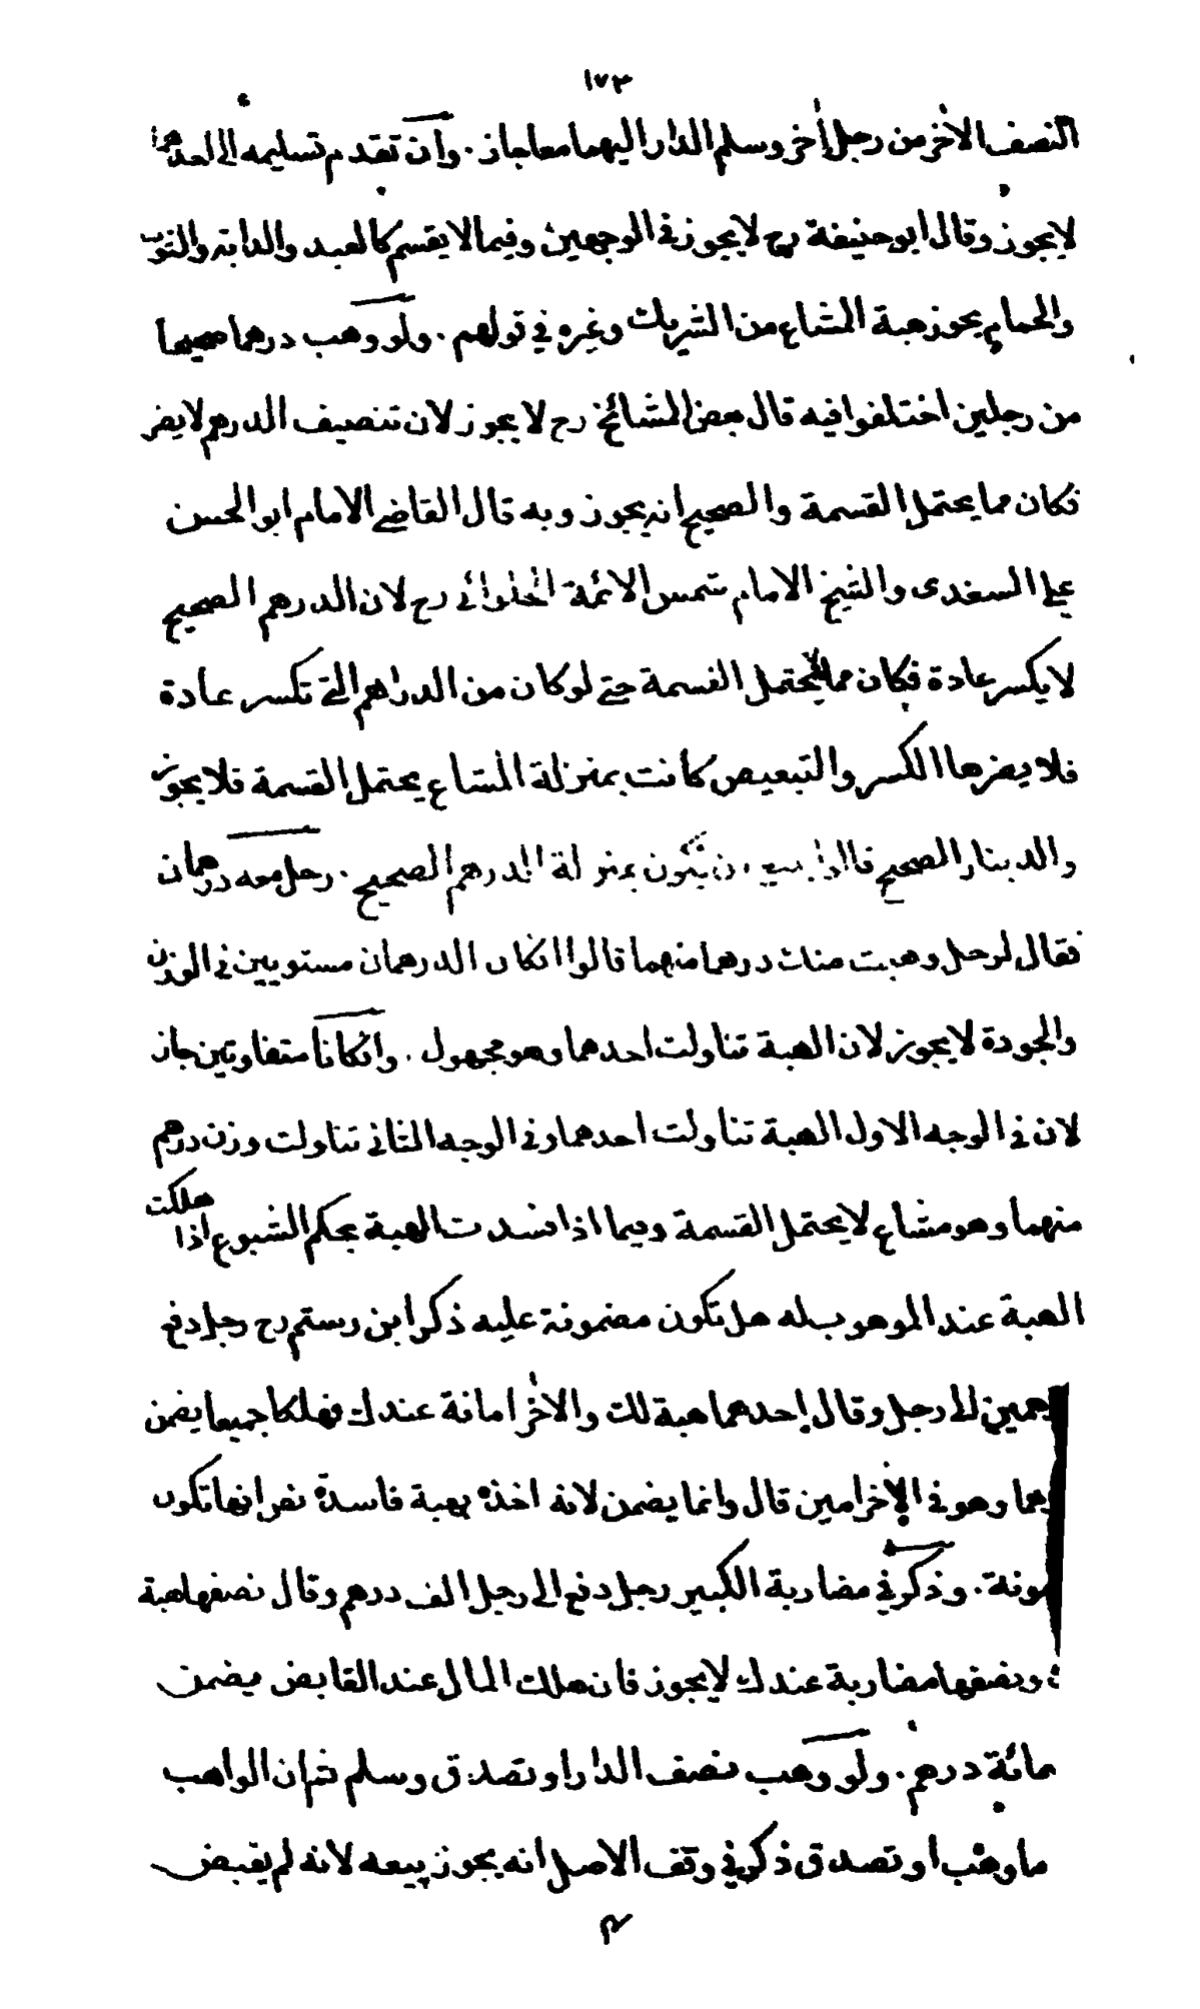 ١٧٣
النصف الاخر من رجل أخر وسلم الدار اليهما معا جاز. وان تقدم تسليمه الى احدهما
لا يجوز وقال ابو حنيفة رح لا يجوز في الوجهين وفيما لا يقسم كالعبد والدابة والثوب
والحمام يجوز هبة المشاع من الشريك وغيره في قولهم. ولو وهب درهما صحيحا
من رجلين اختلفوا فيه قال بعض المشائخ رح لا يجوز لان تنصيف الدرهم لا يضر
فكان مما يحتمل القسمة والصحيح انه يجوز وبه قال القاضي الامام ابو الحسن
علي السغدى والشيخ الامام شمس الائمة الحلوائي رح لان الدرهم الصحيح
لا يكسر عادة فكان مما لا يحتمل القسمة حتى لو كان من الدراهم التي تكسر عادة
فلا يضرها الكسر والتبعيض كانت بمنزلة المشاع يحتمل القسمة فلا يجوز
والدينار الصحيح قالوا ينبغي ان يكون بمنزلة الدرهم الصحيح. رجل معه درهمان
فقال لرجل وهبت منك درهما منهما قالوا انكان الدرهمان مستويين في الوزن
والجودة لا يجوز لان الهبة تناولت احدهما وهو مجهول. وانكانا متفاوتين جاز
لان في الوجه الاول الهبة تناولت احدهما وفي الوجه الثاني تناولت وزن درهم
منهما وهو مشاع لا يحتمل القسمة وفيما اذا فسدت الهبة بحكم الشيوع اذا هلكت
الهبة عند الموهوب له هل تكون مضمونة عليه ذكر ابن رستم رح رجل دفع
همين الى رجل وقال احدهما هبة لك والاخر امانة عندك فهلكا جميعا يضمن
هما وهو في الاخر امين قال وانما يضمن لانه اخذه بهبة فاسدة نص انها تكون
مونة. وذكر في مضاربة الكبير رجل دفع الى رجل الف درهم وقال نصفها هبة
ونصفها مضاربة عندك لا يجوز فان هلك المال عند القابض يضمن
مائة درهم. ولو وهب نصف الدار او تصدق وسلم ثم ان الواهب
ما وهب او تصدق ذكر في وقف الاصل انه يجوز بيعه لانه لم يقبض